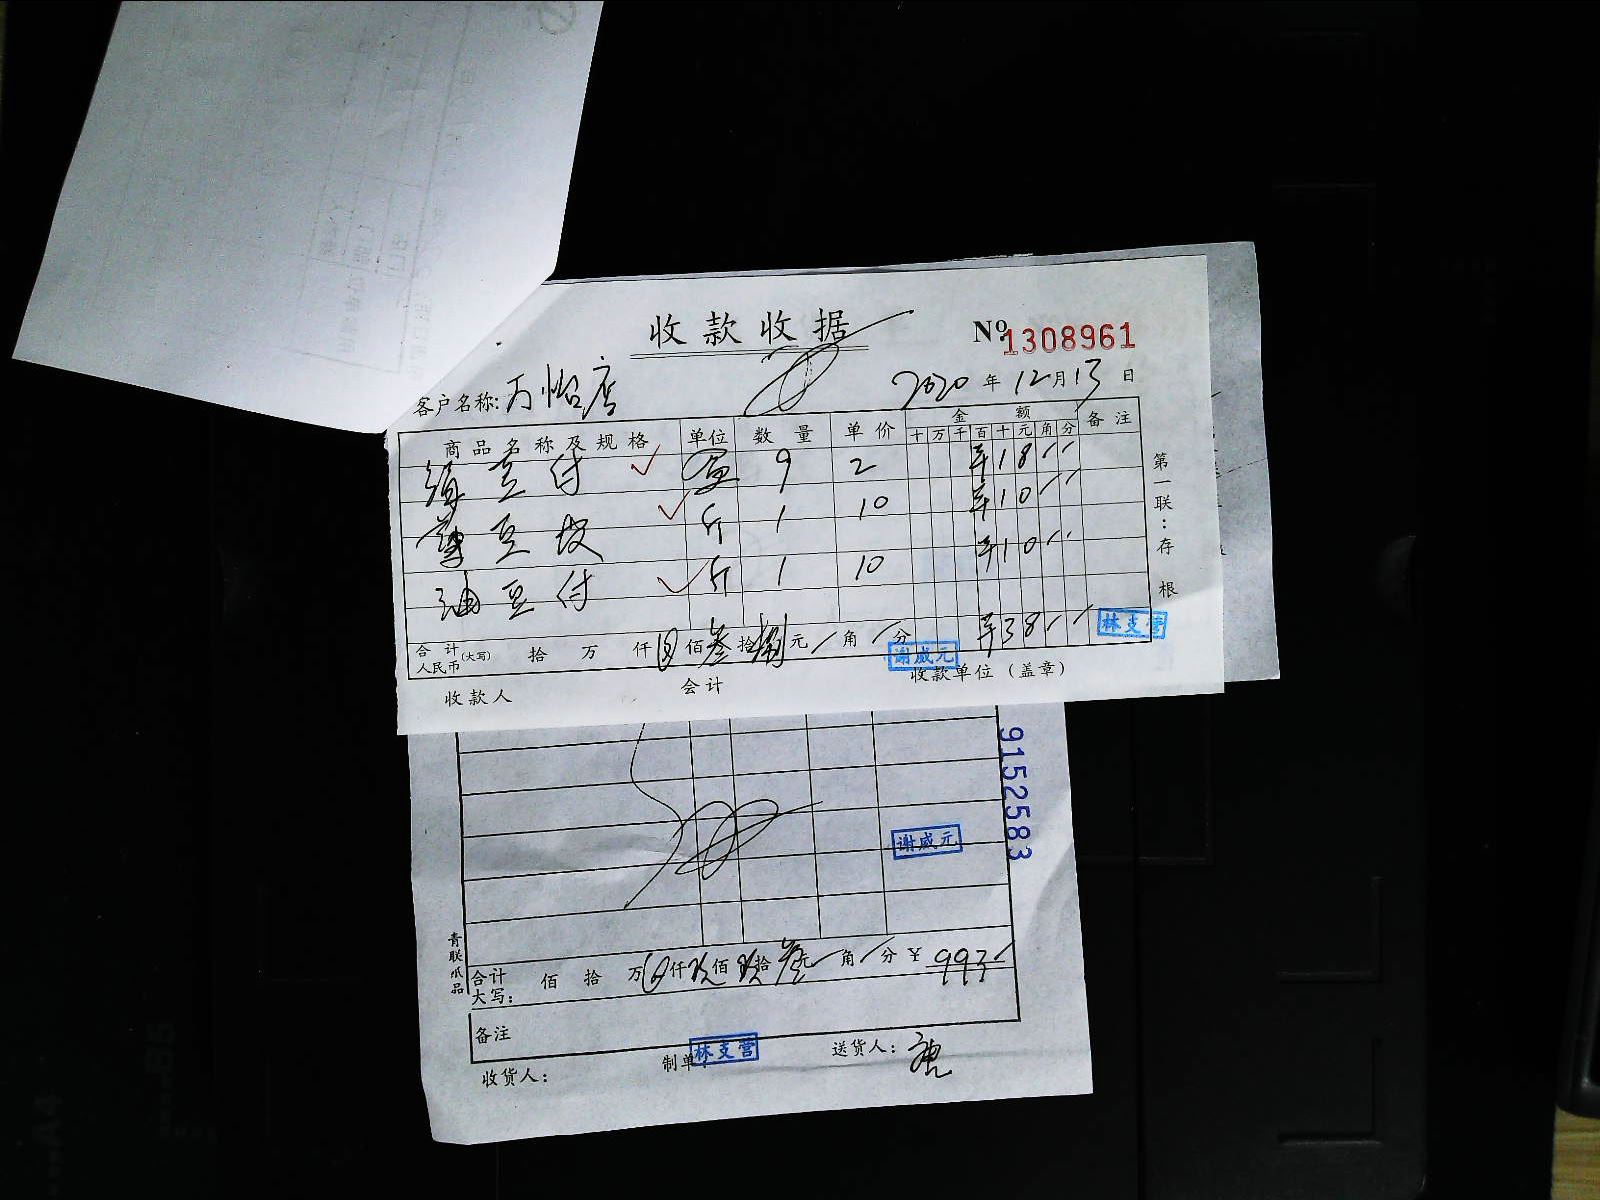 收款收据
No 1308961
客户名称: 万怡店 2020年12月13日
商品名称及规格 单位 数量 单价 金额 备注
十万千百十元角分
豆付 盒 9 2 18
豆 斤 1 10 10
油豆付 斤 1 10 10
合计人民币(大写) 拾 万 仟 佰叁拾捌元/角/分 38
谢威元
林支营
收款人 会计 收款单位(盖章)
第一联:存根
9152583
谢威元
青联纸品
合计大写: 佰 拾 万 仟玖佰玖拾叁元/角/分 ¥993
备注
收货人: 制单 林支营 送货人: